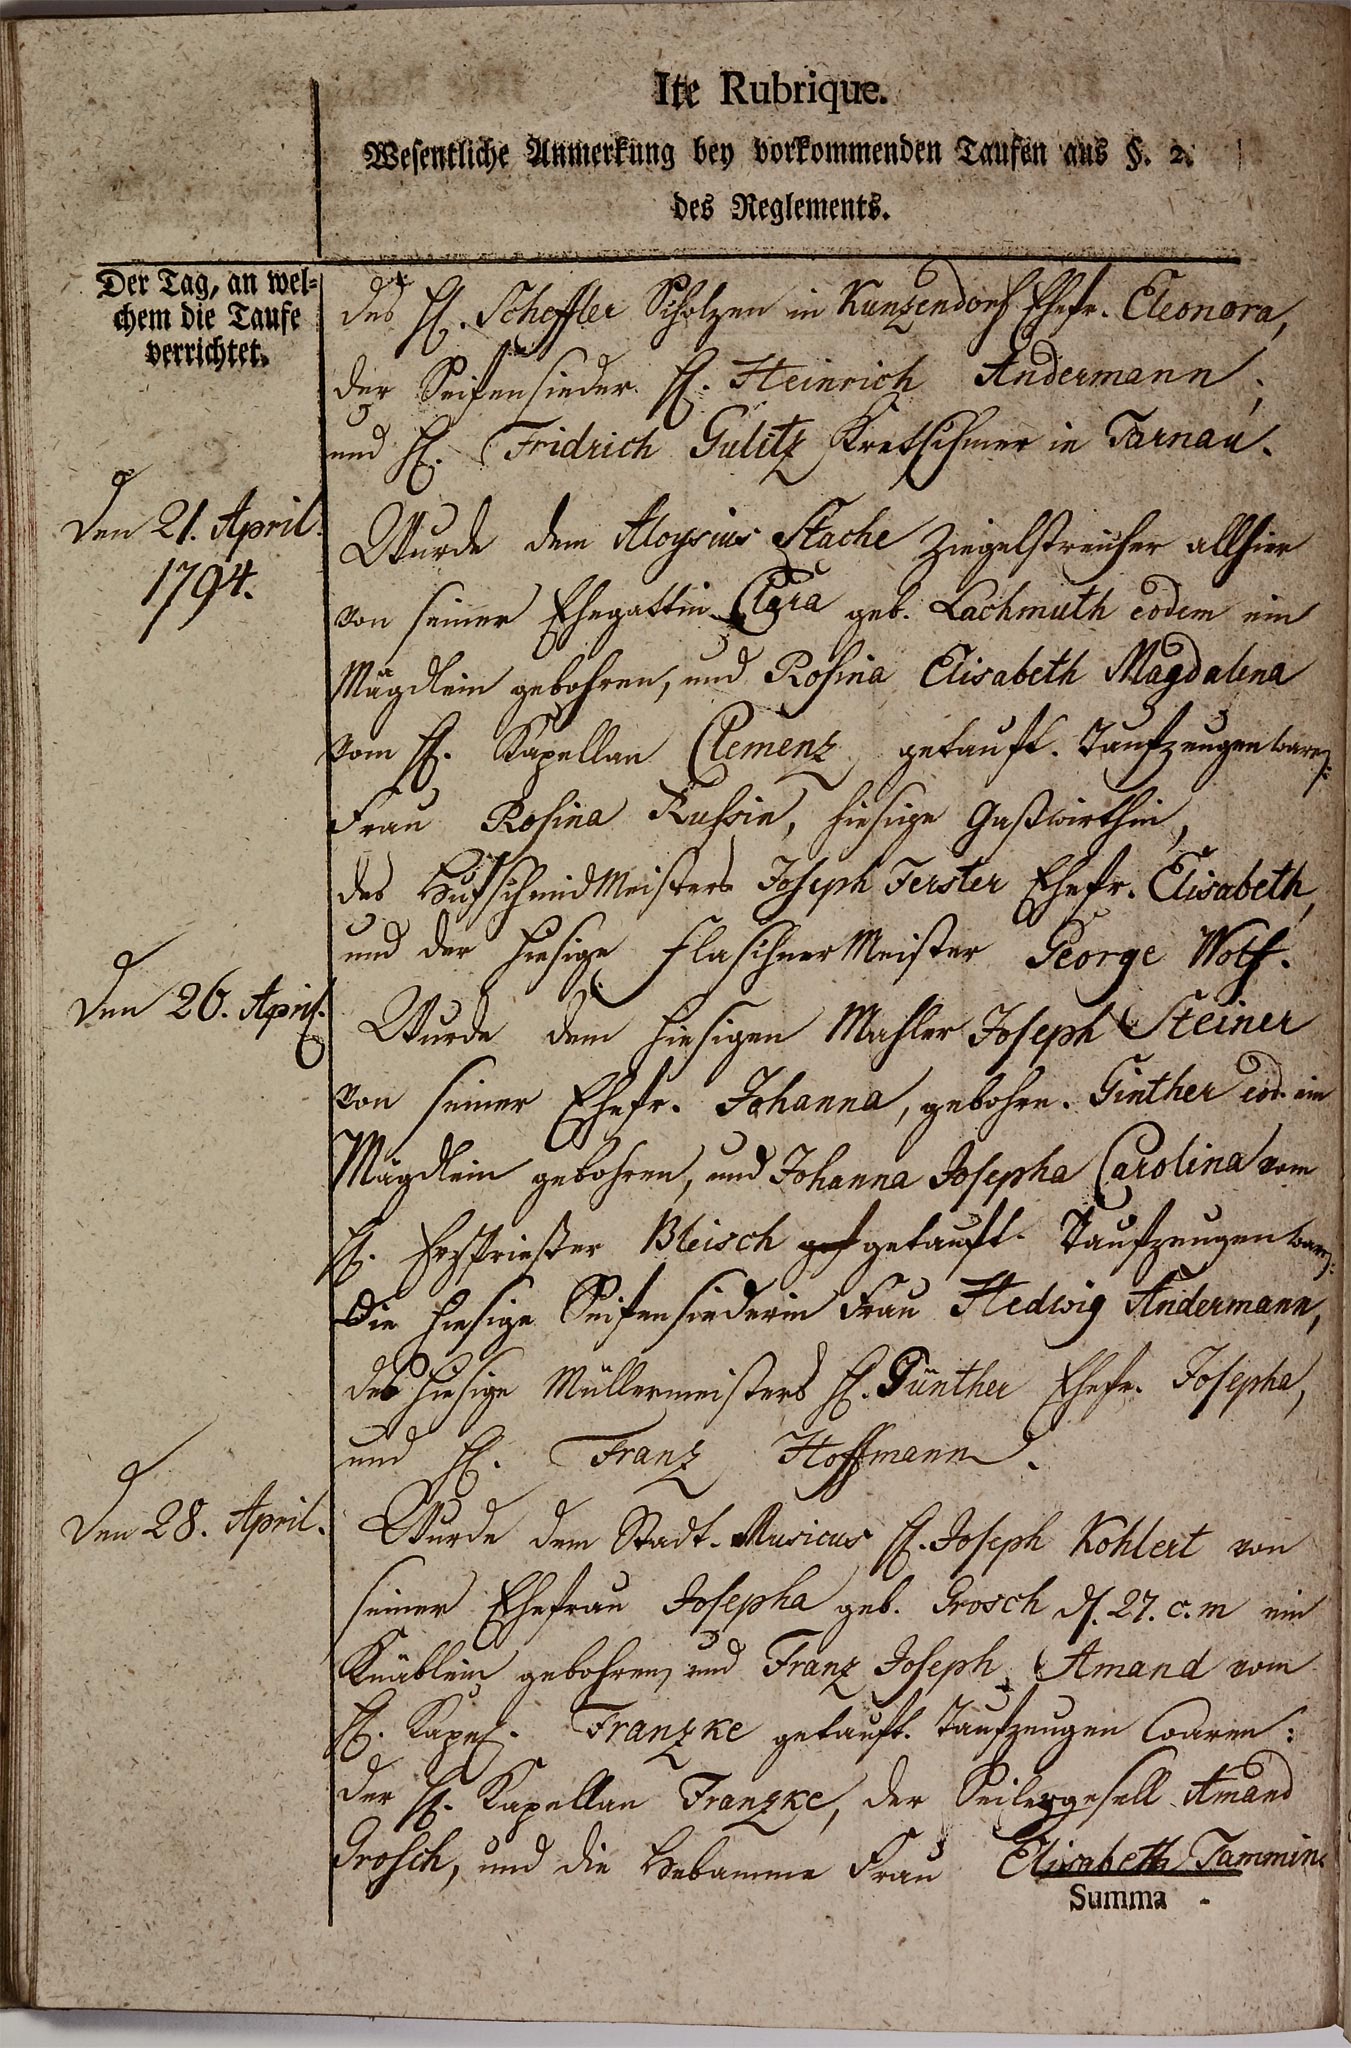 Ite Rubrique.
Wesentliche Anmerkung bey vorkommenden Taufen aus §. 2.
des Reglements.
Der Tag, an wel=
chem die Taufe
verrichtet.
des H. Scheffler Scholzen in Kunzendorf Ehefr. Eleonora,
der Seifensieder H. Heinrich Andermann,
und H. Fridrich Gulitz Kretschmer in Tarnau.
den 21. April
1794.
Wurde dem Aloysius Stache Ziegelstreicher allhier
von seiner Ehegattin Clara geb. Lachmuth eodem ein
Mägdlein gebohren, und Rosina Elisabeth Magdalena
vom H. Kapellan Clemenz getauft. Taufzeugen waren:
Frau Rosina Russin, hiesige Gaßwirthin,
des Hufschmid Meisters Joseph Ferster Ehefr. Elisabeth,
und der hiesige Flaschner Meister George Wolf.
den 26. April.
Wurde dem hiesigen Mahler Joseph Steiner
von seiner Ehefr. Johanna, gebohrn. Ginther eod. ein
Mägdlein gebohren, und Johanna Josepha Carolina vom
H. Erzpriester Bleisch getauft. Taufzeugen waren:
Die hiesige Seifensiederin Frau Hedwig Andermann,
des hiesige Müllermeisters H. Günther Ehefr. Josepha,
und H. Franz Hoffmann.
den 28. April.
Wurde dem Stadt-Musicus H. Joseph Kohlert von
seiner Ehefrau Josepha geb. Grosch d. 27. c. m ein
Knäblein gebohren, und Franz Joseph Amand vom
H. Kapel. Franzke getauft. Taufzeugen waren:
der H. Kapellan Franzke, der Seilergesell Amand
Grosch, und die Hebamme Frau Elisabeth Tammin.
Summa -